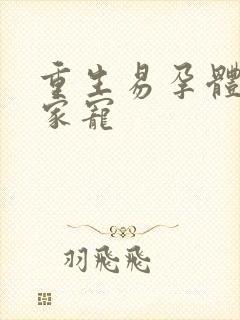 重生易孕體
家寵
羽飛飛